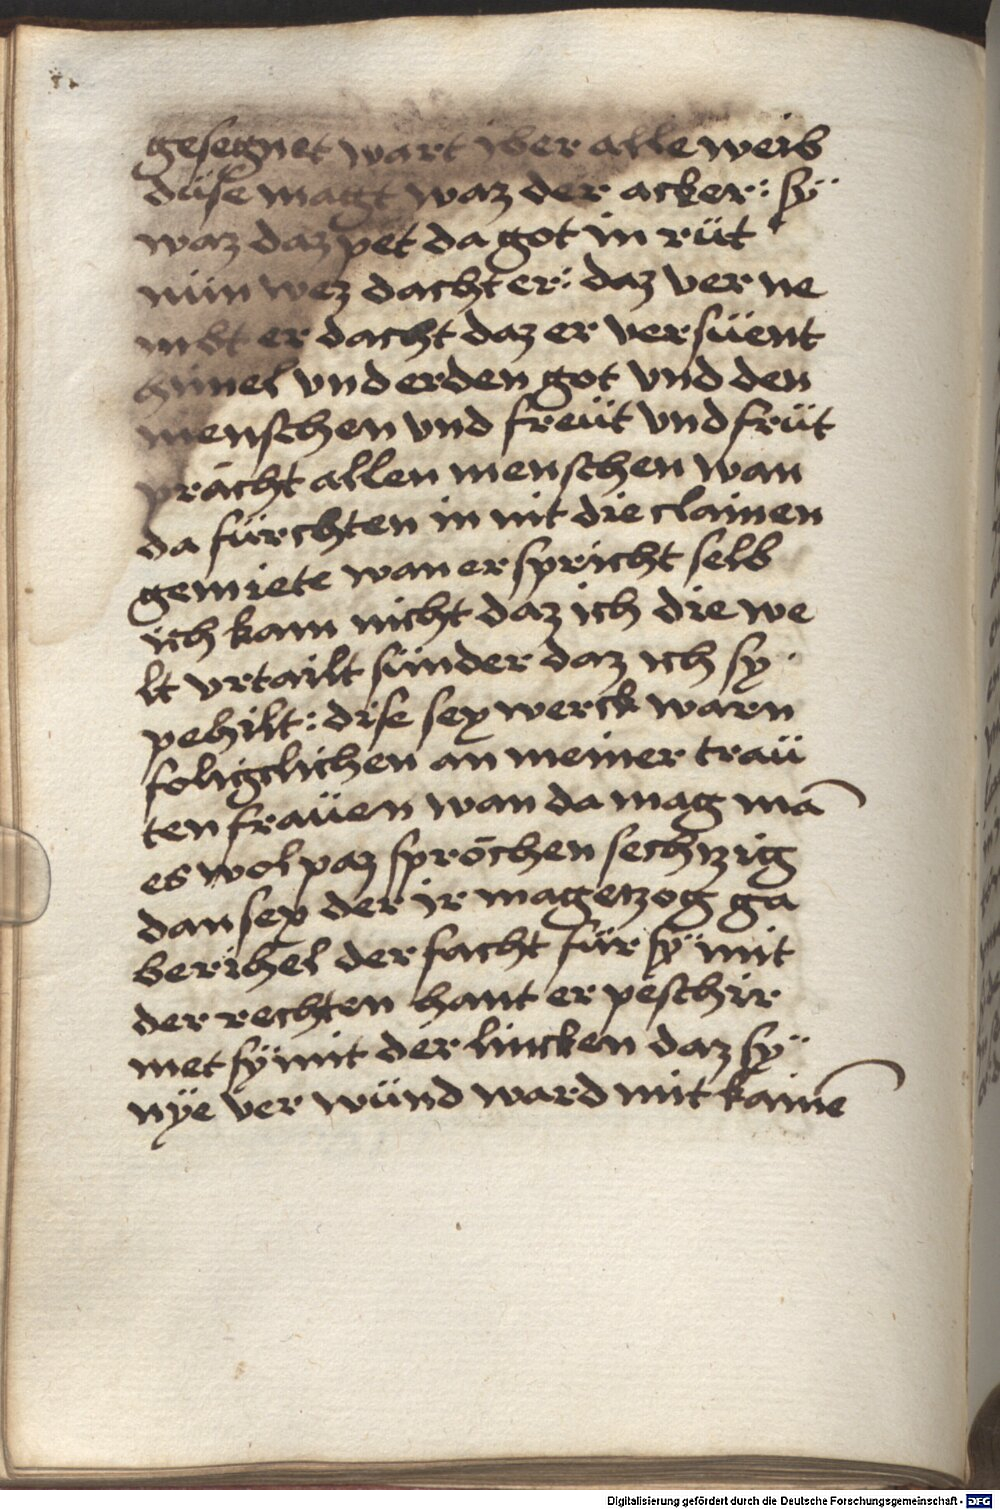 gesegnet wart iber alle weib
düse magt waz der acker: sÿ
waz daz pet da got in rüt
nün wez dacht er: daz ver ne
mbt er dacht daz er versüent
himel vnd erden got vnd den
menschen vnd freüt vnd früt
pracht allen menschen wan
da fürchten in nit die clainen
gemiete wan er spricht selb
ich kam nicht daz ich die we
lt vrtailt sünder daz ich sy
pehilt: dise sex werck warn
foligclichen an meiner traü
ten fraüen wan da mag mā
es wol paz spröchen sechtzig
dan sex der ir magetzog ga
berihel der facht für sÿ mit
der rechten hant er peschir
met sÿ mit der lincken daz sÿ
nÿe ver wünd ward mit kainē
Digitalisierung gefördert durch die Deutsche Forschungsgemeinschaft - DFG